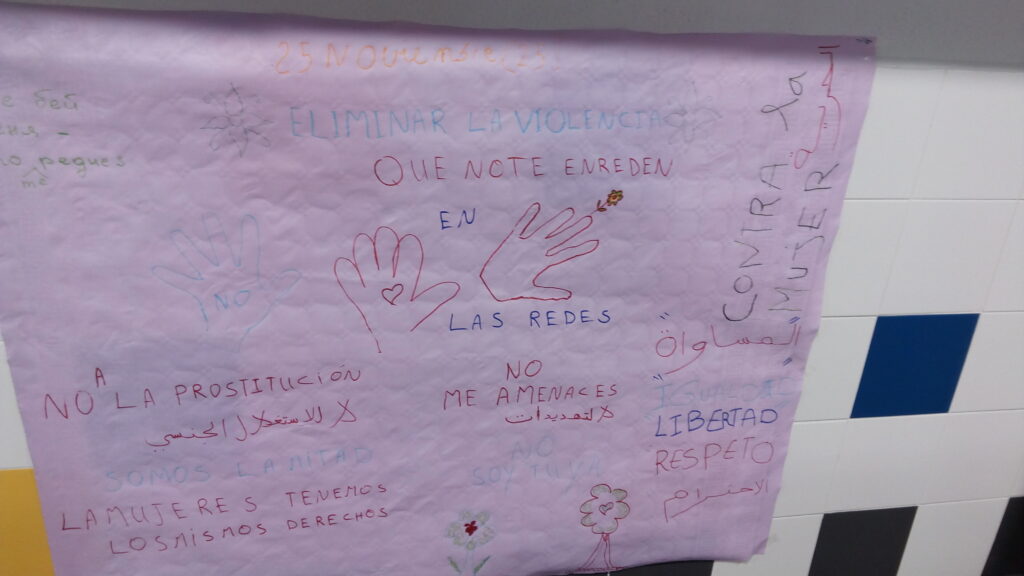 25 Noviembre
ELIMINAR LA VIOLENCIA
CONTRA la
MUJER
الحرية
е бей
no pegues
me
QUE NO TE ENREDEN
EN
LAS REDES
NO
"المساواة"
IGUALDAD
LIBERTAD
RESPETO
الاحترام
NO A LA PROSTITUCIÓN
لا للاستغلال الجنسي
SOMOS LA MITAD
LA MUJERES TENEMOS
LOS MISMOS DERECHOS
NO
ME AMENACES
لا لتهديدات
NO
SOY TUYA